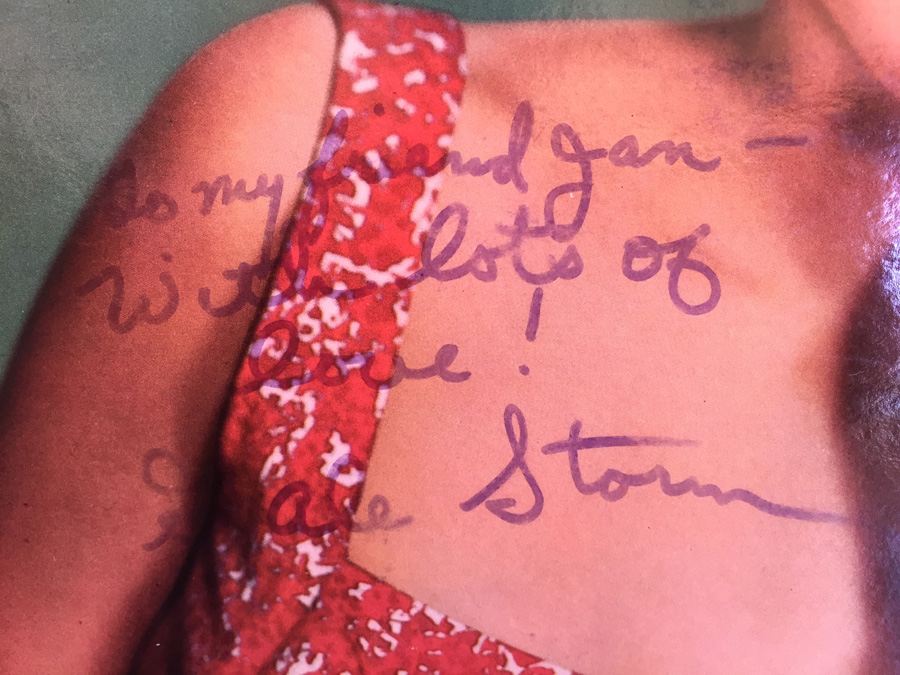 To my friend Jan —
With lots of
love!
Gale Storm